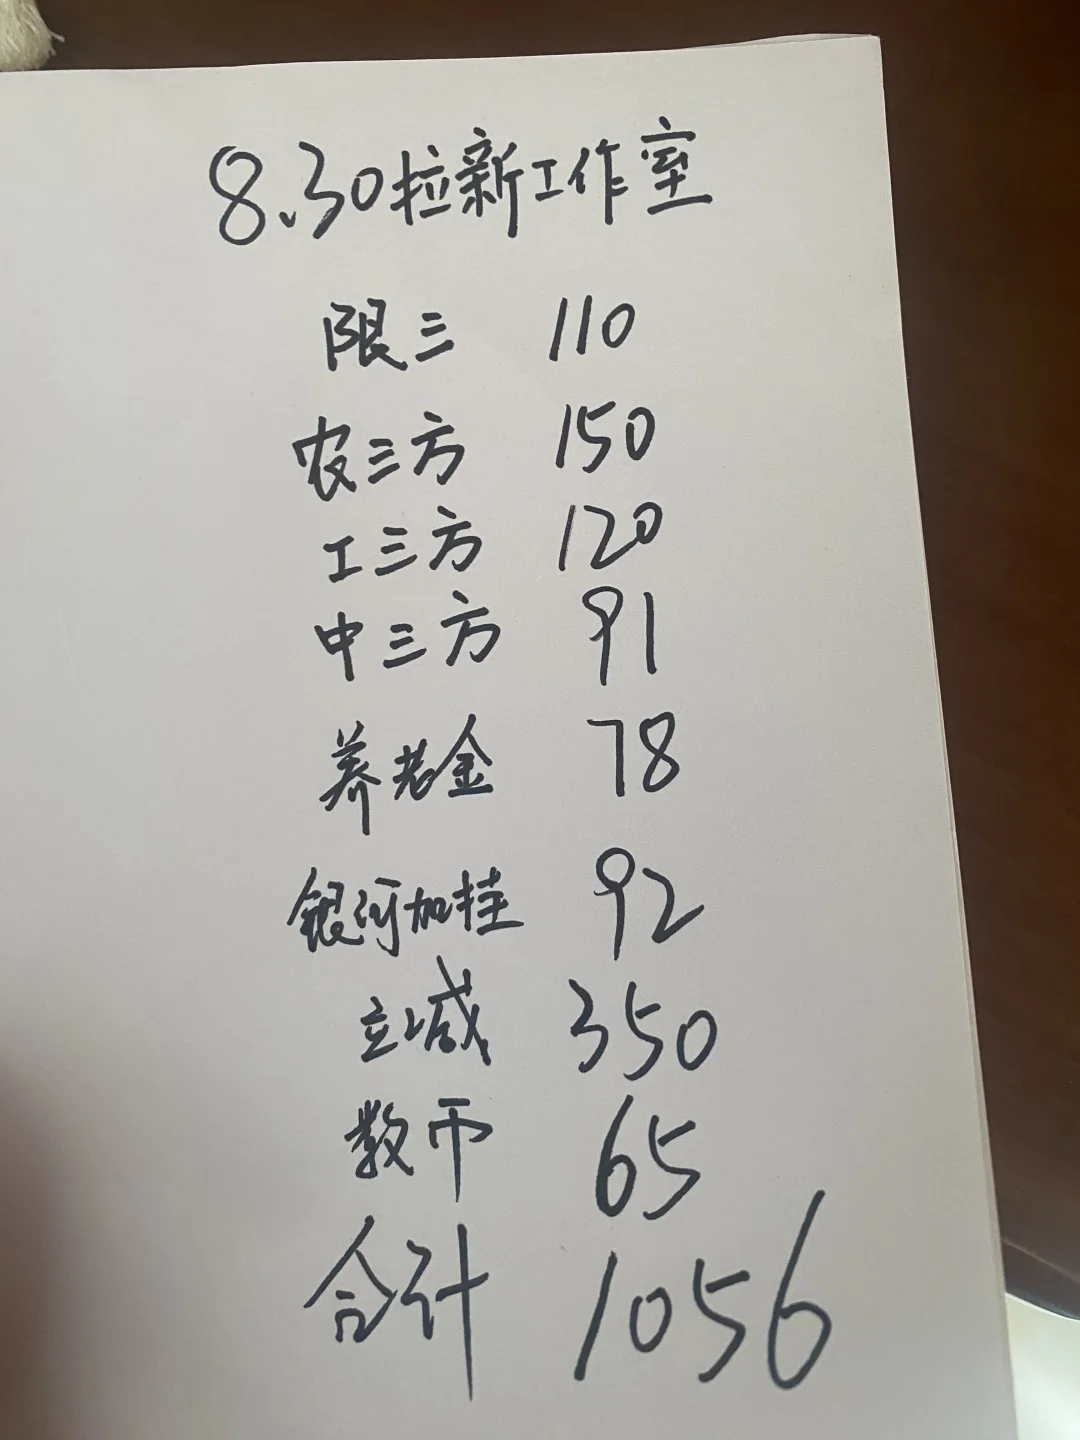 8.30拉新工作室
限三 110
农三方 150
工三方 120
中三方 91
养老金 78
银河加挂 92
立减 350
数币 65
合计 1056